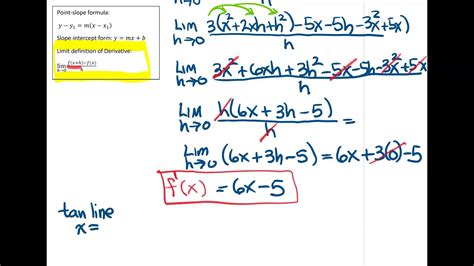 Point-slope formula:
y − y₁ = m(x − x₁)
Slope-intercept form: y = mx + b
Limit definition of Derivative:
lim h→0 f(x+h)−f(x) / h
Lim h→0 3(x²+2xh+h²)-5x-5h-3x²+5x) / h
Lim h→0 3x²+6xh+3h²-5x-5h-3x²+5x / h
Lim h→0 h(6x+3h-5) / h =
Lim h→0 (6x+3h-5) = 6x+3(0)-5
f'(x) = 6x-5
tan line
x=